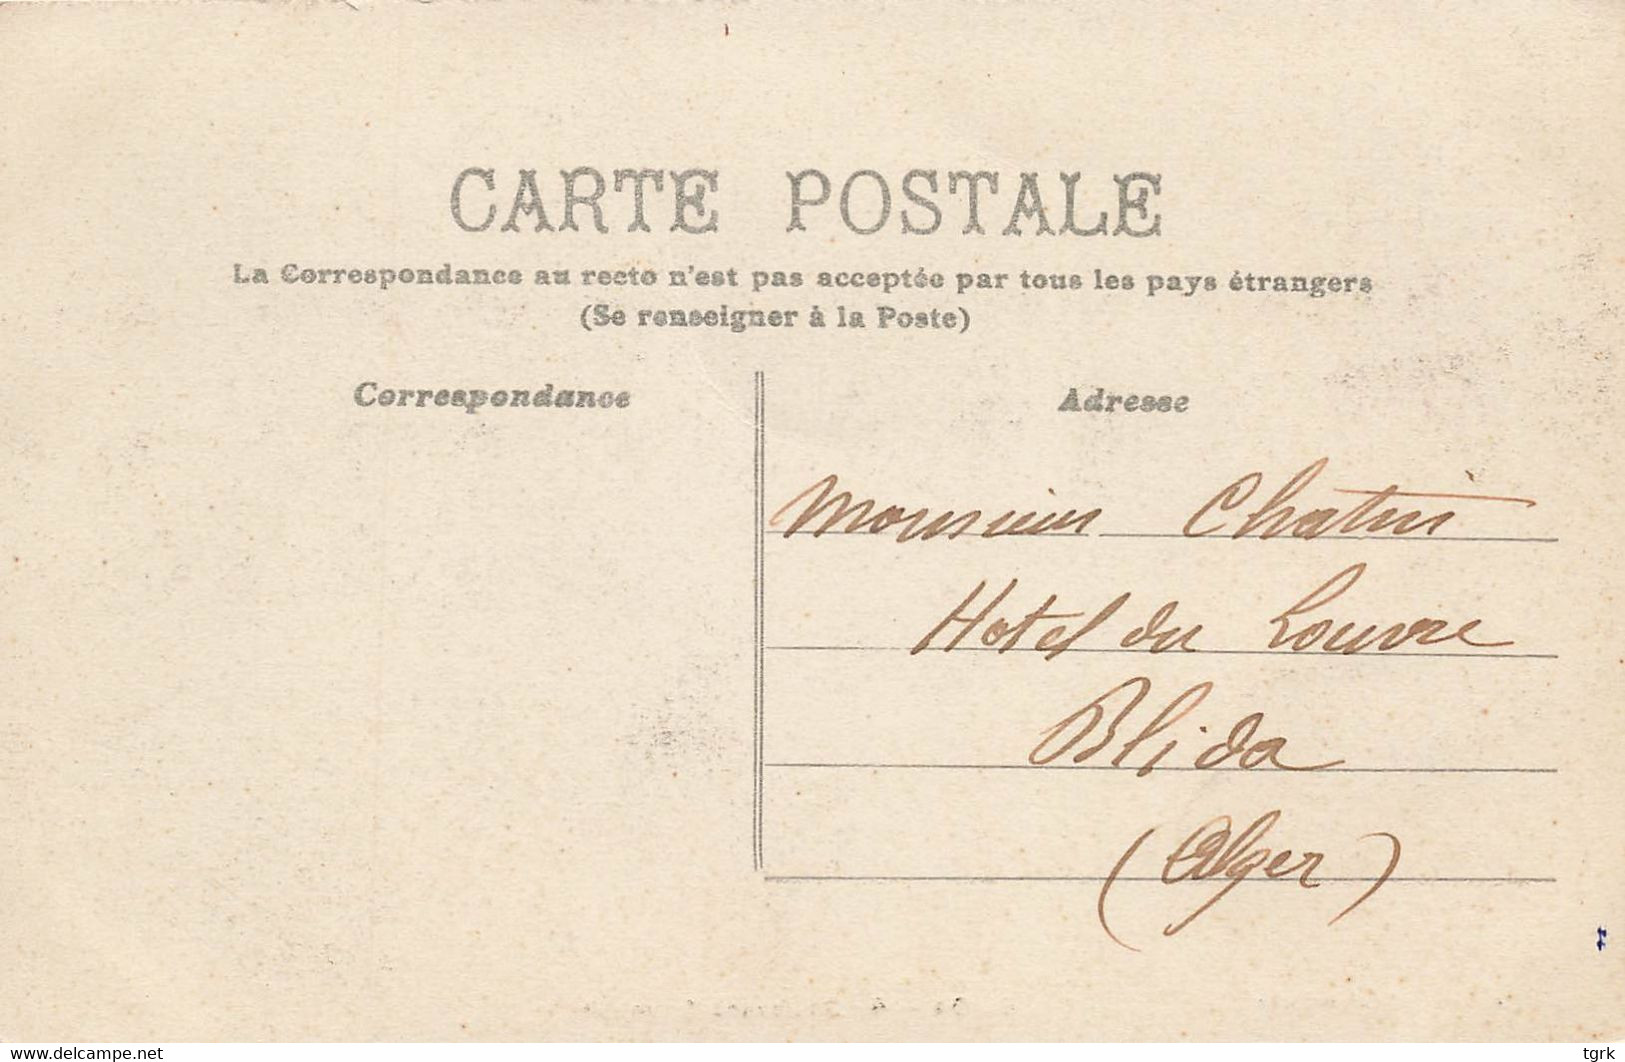 CARTE POSTALE
La Correspondance au recto n'est pas acceptée par tous les pays étrangers
(Se renseigner à la Poste)
Correspondance
Adresse
Monsieur Chatin
Hotel du Louvre
Blida
(Alger)
www.delcampe.net
tgrk